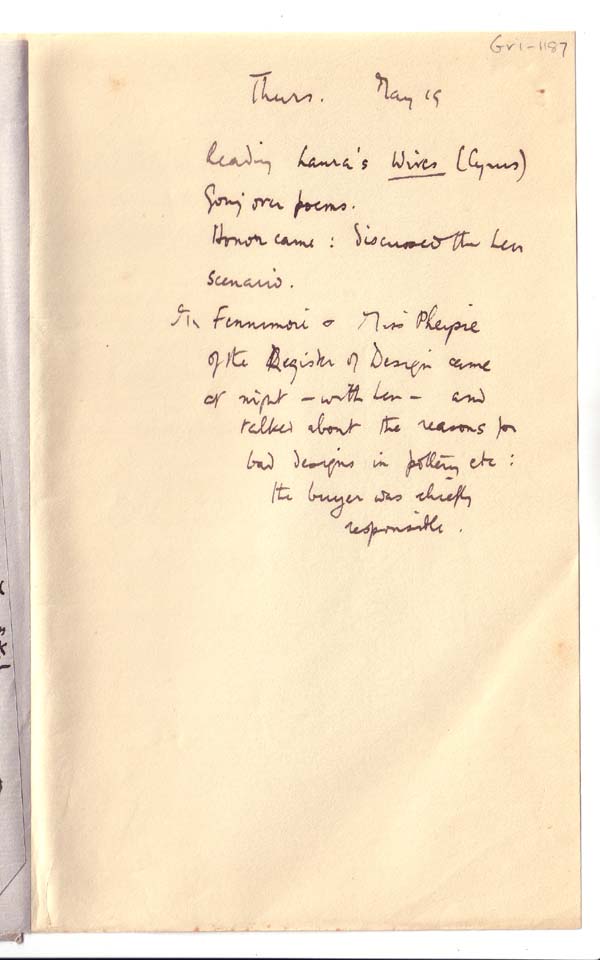 Gv1-1187
Thurs. May 19
Reading Laura's Wives (Cyrus)
Going over poems.
Honor came : discussed the Len
scenario.
Mr Fennimore & Miss
of the Register of Design came
at night - with Len - and
talked about the reasons for
bad designs in pottery etc :
the buyer was chiefly
responsible.